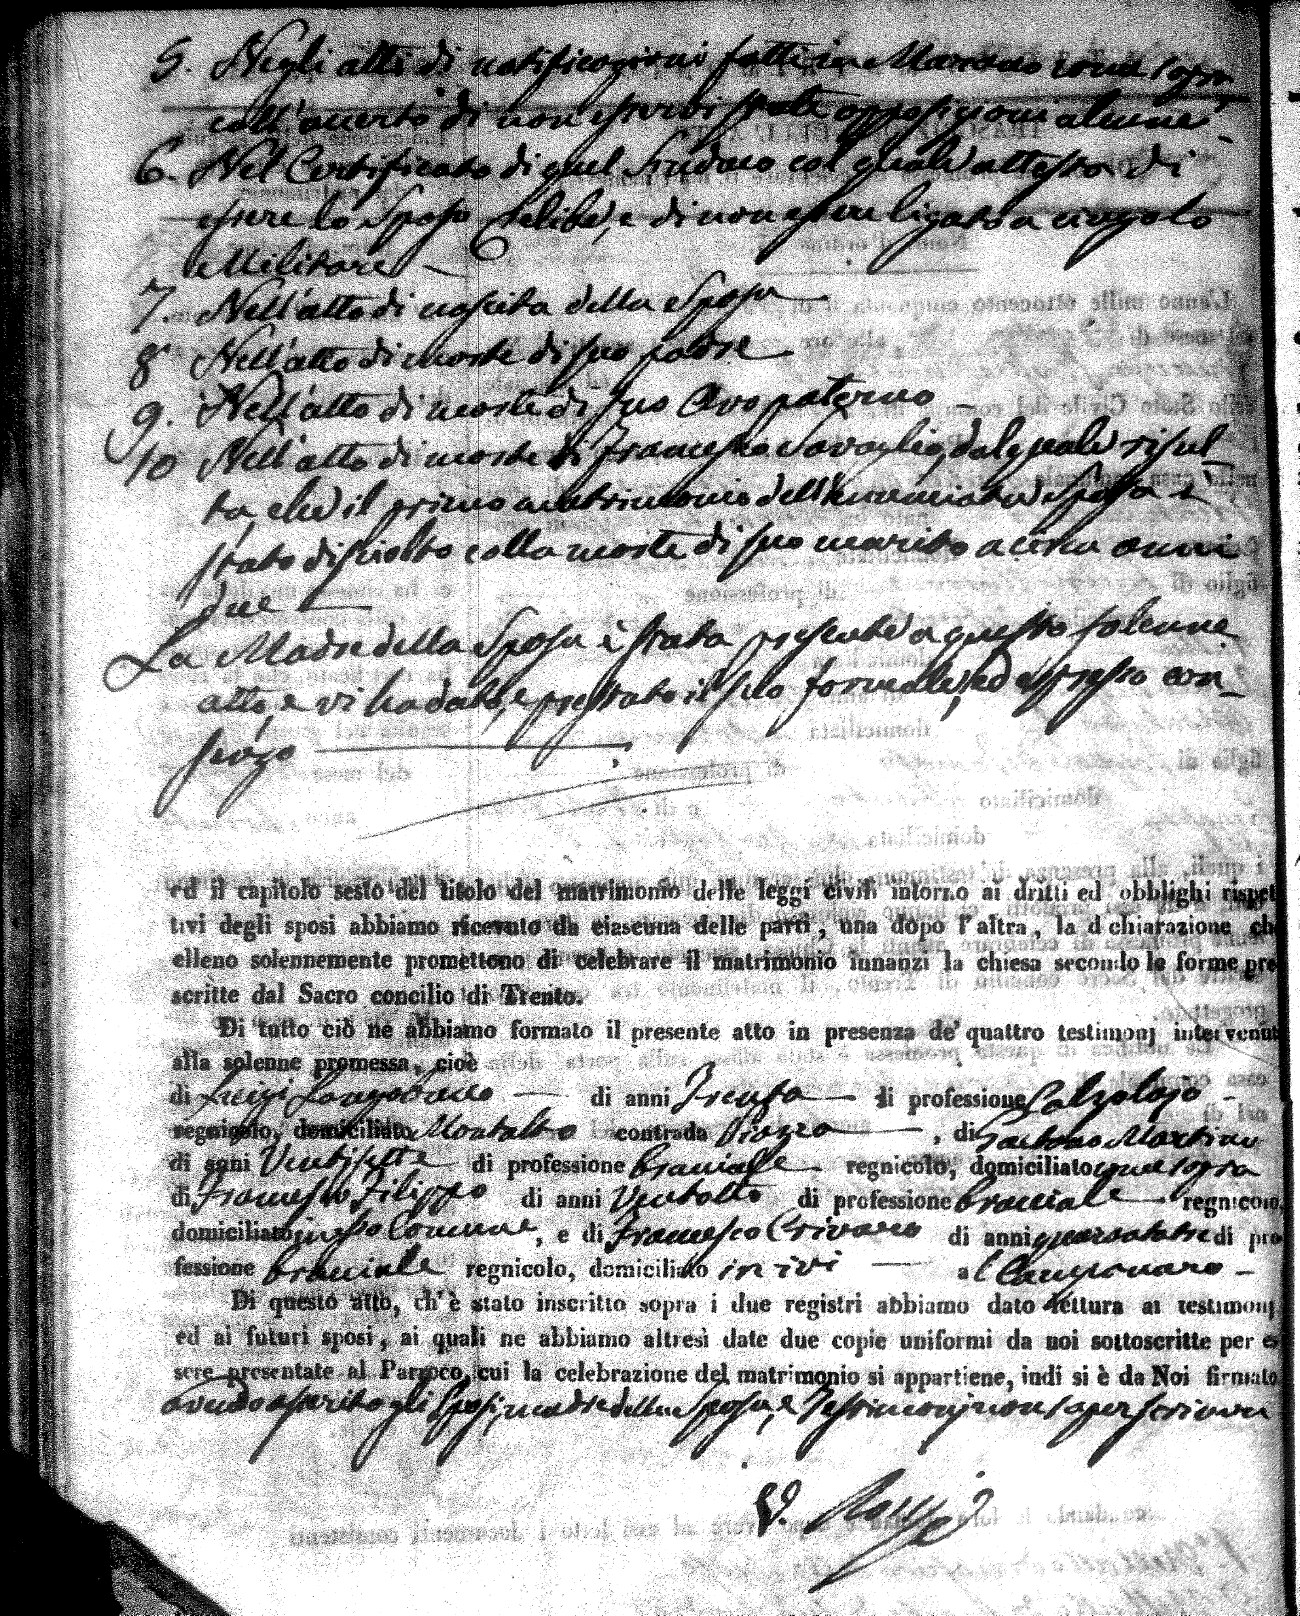 5. Negli atti di notificazioni fatti in Marano come sopra
coll'accerto di non esservi state opposizioni alcune
6. Nel Certificato di quel Sindaco col quale attesta di
essere lo Sposo Celibe, e di non essere ligato a cingolo
Militare
7. Nell'atto di nascita della Sposa
8 Nell'atto di morte di suo padre
9. Nell'atto di morte di suo Avo paterno
10 Nell'atto di morte di Francesco Savaglio, dal quale risul-
ta, che il primo matrimonio dell'enunciata Sposa è
stato disciolto colla morte di suo marito a circa anni
due
La Madre della Sposa è stata presente a questo solenne
atto, e vi ha dato, e prestato il suo formale, ed espresso con-
senzo
ed il capitolo sesto del titolo del matrimonio delle leggi civili intorno ai dritti ed obblighi rispet
tivi degli sposi abbiamo ricevuto da ciascuna delle parti, una dopo l'altra, la dichiarazione che
elleno solennemente promettono di celebrare il matrimonio innanzi la chiesa secondo le forme pre
scritte dal Sacro concilio di Trento.
Di tutto ciò ne abbiamo formato il presente atto in presenza de' quattro testimonj intervenuti
alla solenne promessa, cioè
di Luigi Longobucco di anni Trenta di professione Calzolajo
regnicolo, domiciliato Montalto contrada Piazza, di Gaetano Martino
di anni Ventisette di professione Bracciale regnicolo, domiciliato come sopra
di Francesco Filippo di anni Ventotto di professione bracciale regnicolo,
domiciliato in esso Comune, e di Francesco Crivaro di anni quarantatre di pro
fessione bracciale regnicolo, domiciliato in ivi al Campanaro
Di questo atto, ch'è stato inscritto sopra i due registri abbiamo dato lettura ai testimonj
ed ai futuri sposi, ai quali ne abbiamo altresì date due copie uniformi da noi sottoscritte per es
sere presentate al Parroco, cui la celebrazione del matrimonio si appartiene, indi si è da Noi firmato
avendo asserito gli Sposi, madre della Sposa, e Testimonj non saper scrivere